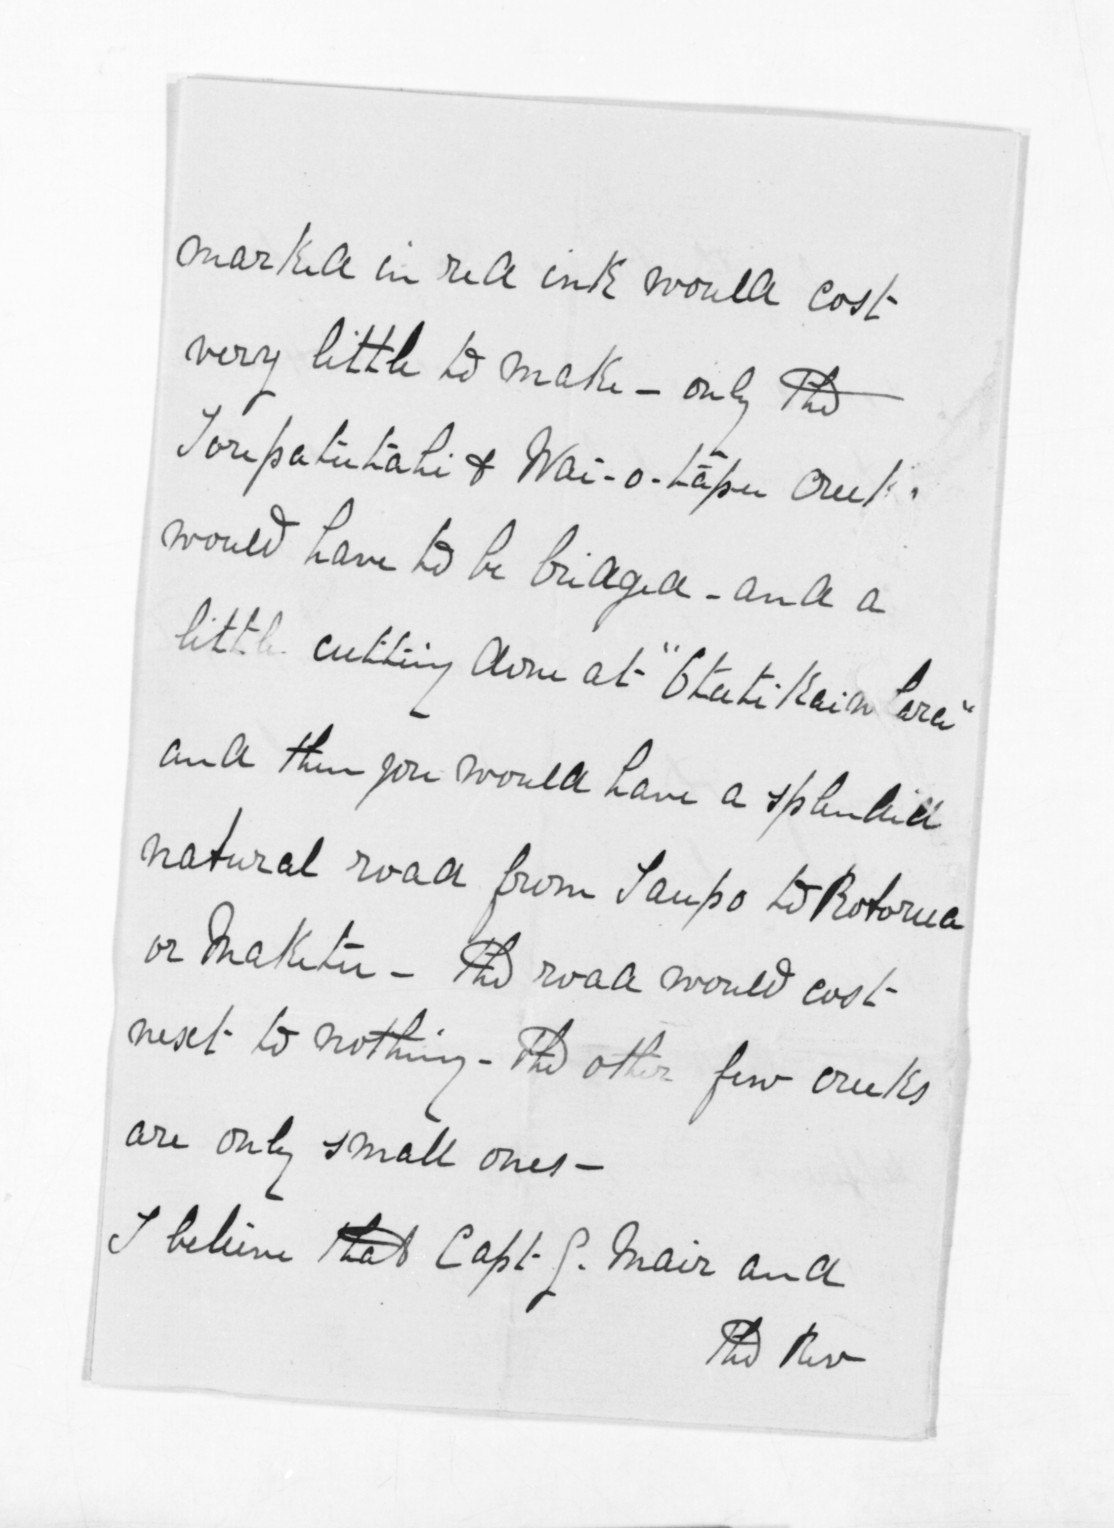 marked in red ink would cost
very little to make – only the
Torepatutahi & Wai-o-tāpu creeks
would have to be bridged – and a
little cutting done at
and then you would have a splendid
natural road from Taupo to Rotorua
or Maketu – The road would cost
next to nothing – The other few creeks
are only small ones –
I believe that Capt. G. Mair and
The Rev